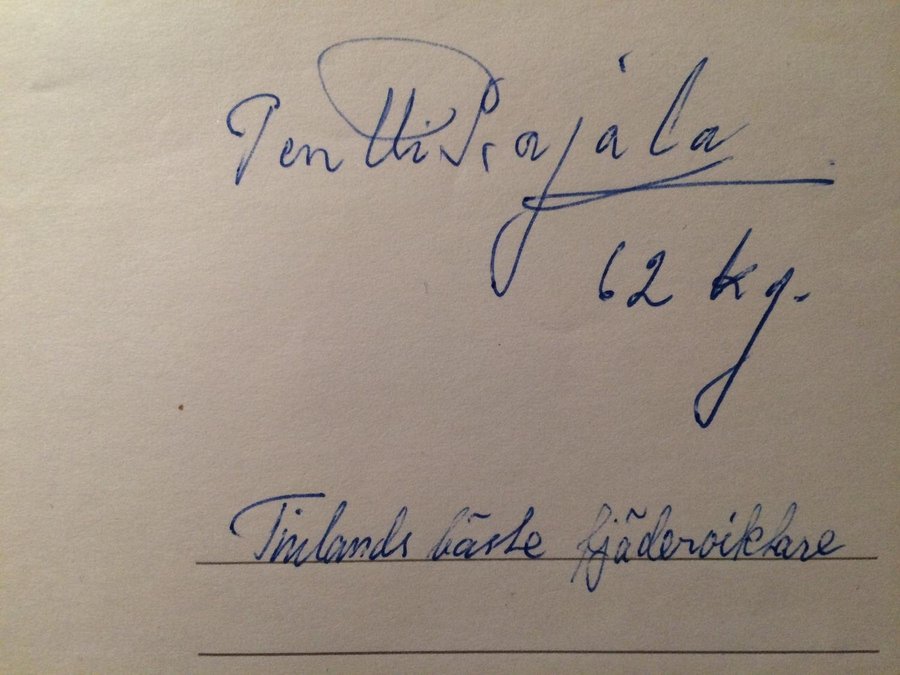 Pentti Rajala
62 kg.
Finlands bäste fjäderviktare